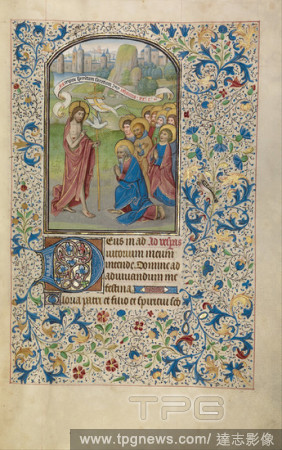 Eus in ad Ad vesp[er]is
iutorium meum
intende. Domine ad
adiuuandum me
festina.
Gloria patri et filio et spiritui sc
TPG
www.tpgnews.com/達志影像